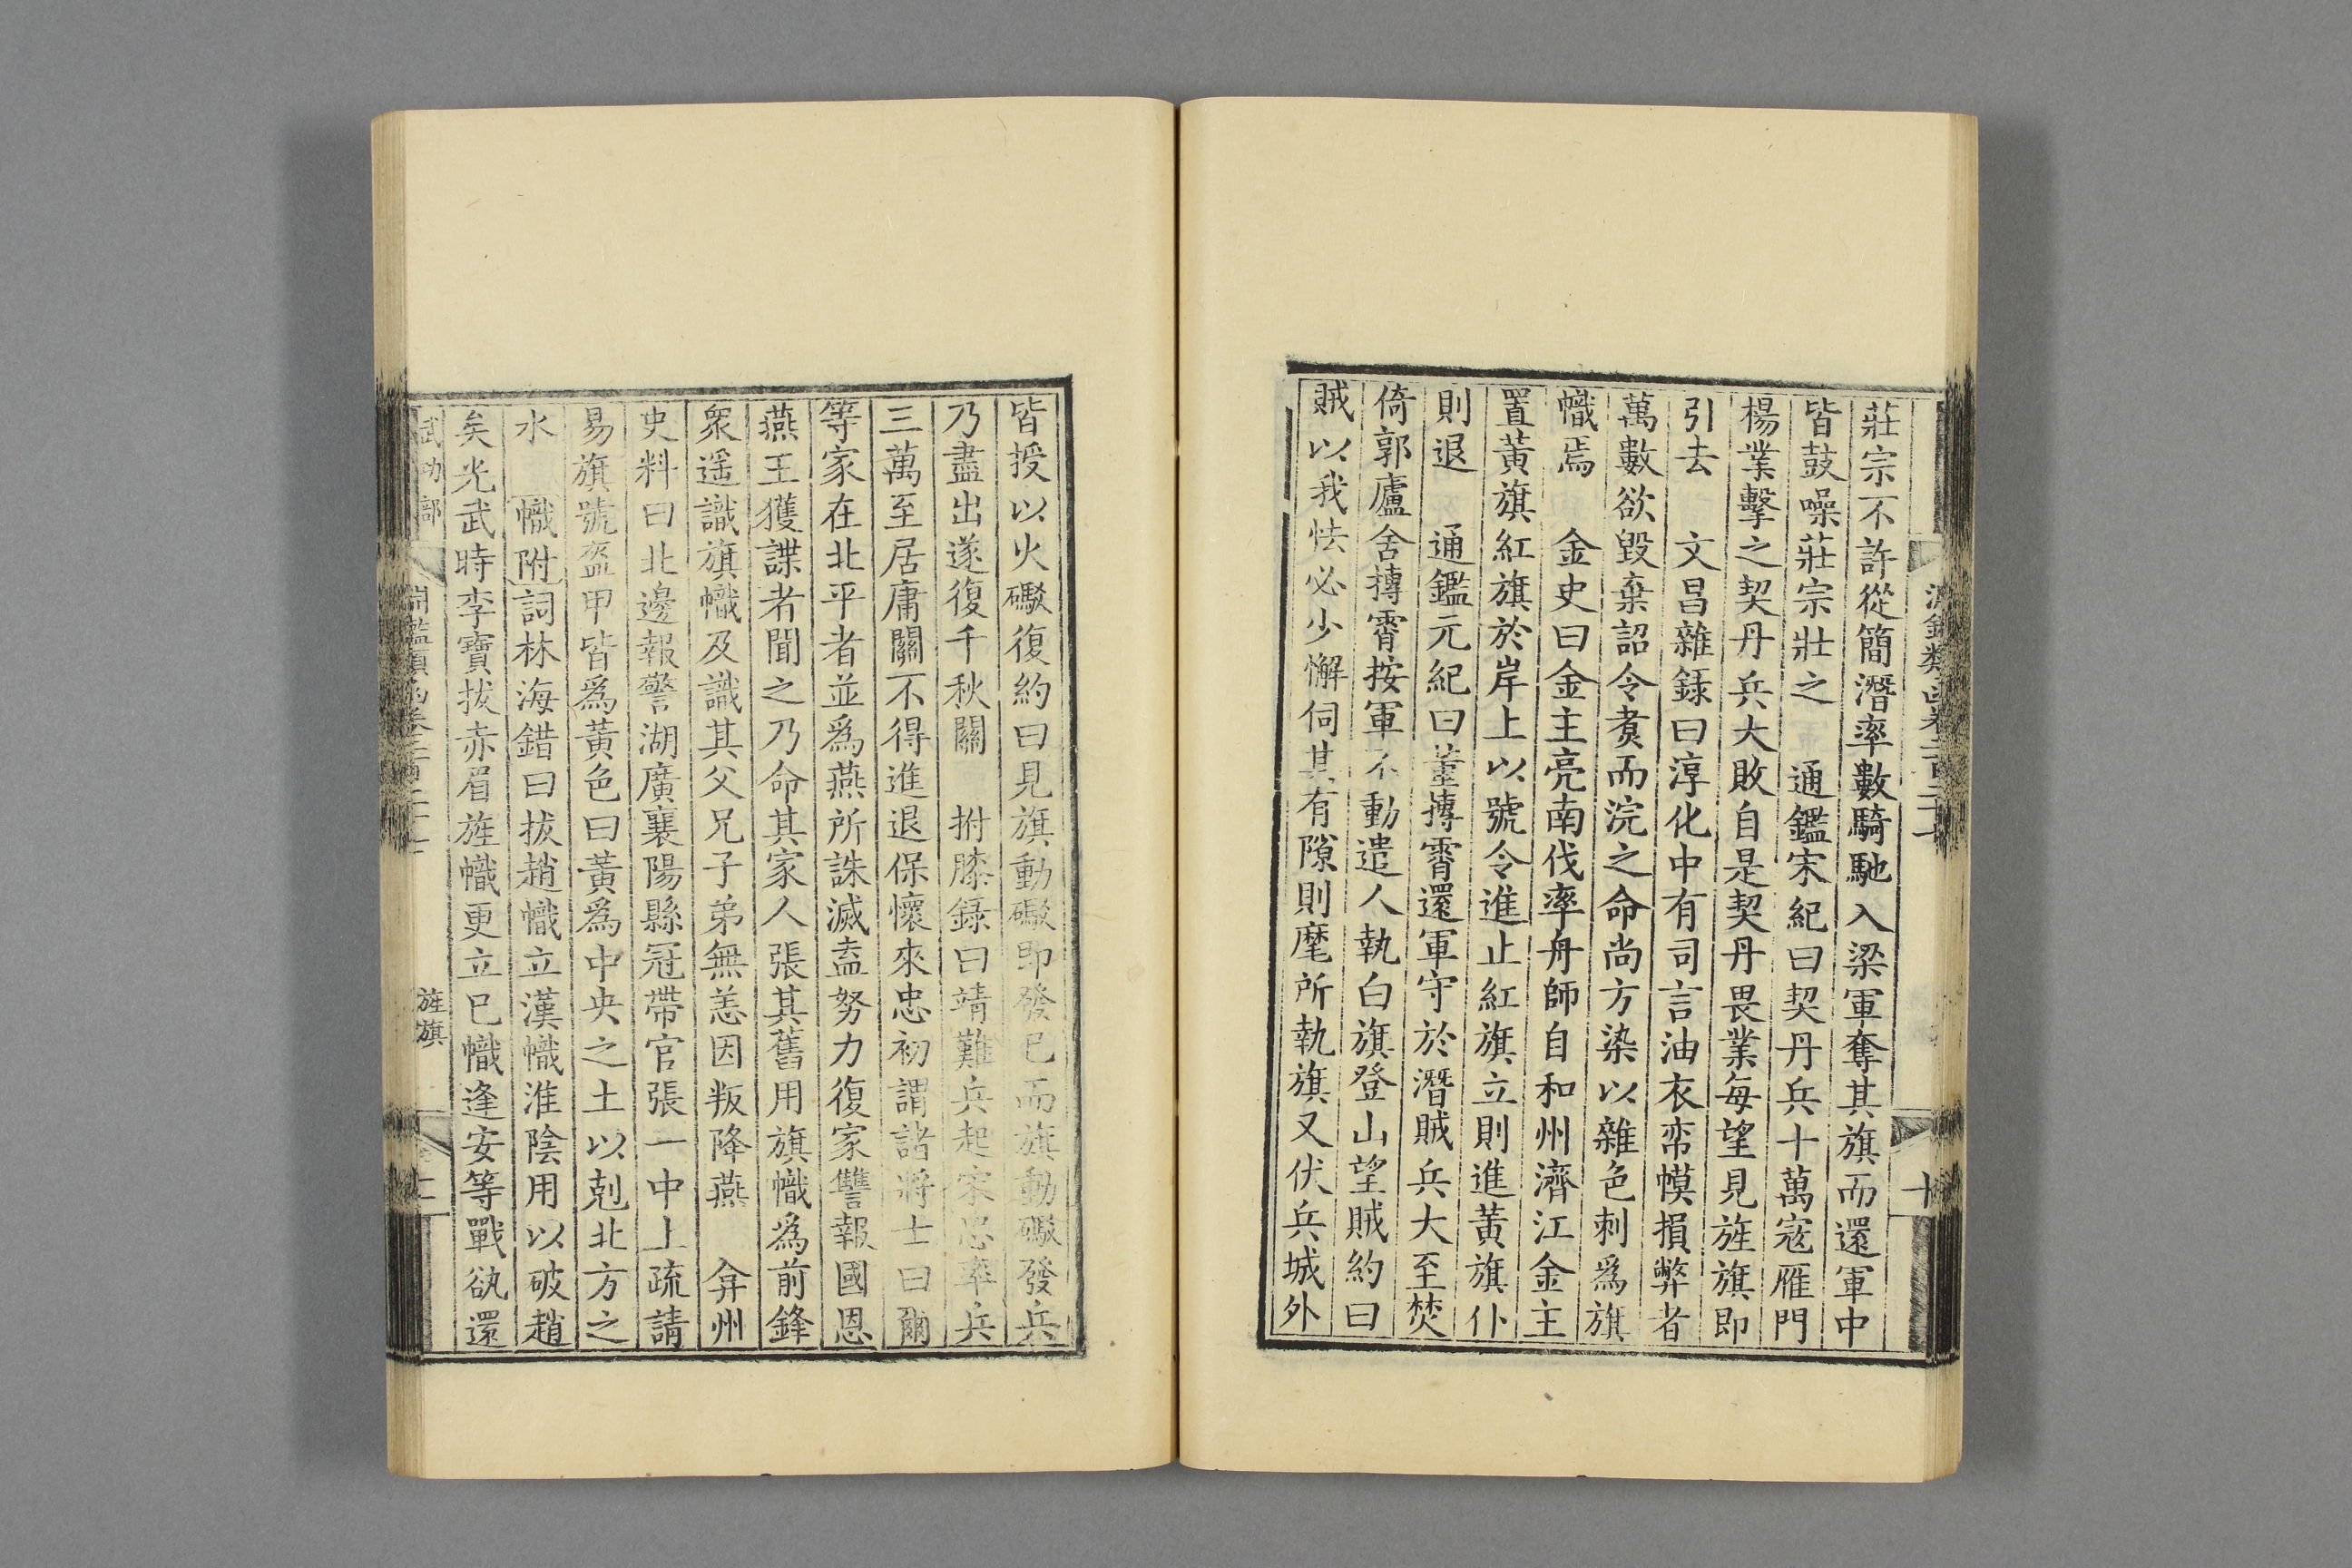 莊宗不許從簡潛率數騎馳入梁軍奪其旗而還軍中
皆鼓噪莊宗壯之　通鑑宋紀曰契丹兵十萬寇雁門
楊業擊之契丹兵大敗自是契丹畏業每望見旌旗即
引去　文昌雜錄曰淳化中有司言油衣帟幙損弊者
萬數欲毀棄詔令煑而浣之命尚方染以雜色刺爲旗
幟焉　金史曰金主亮南伐率舟師自和州濟江金主
置黃旗紅旗於岸上以號令進止紅旗立則進黃旗仆
則退　通鑑元紀曰董摶霄還軍守於潛賊兵大至焚
倚郭廬舍摶霄按軍不動遣人執白旗登山望賊約曰
賊以我怯必少懈伺其有隙則麾所執旗又伏兵城外
皆授以火礮復約曰見旗動礮即發已而旗動礮發兵
乃盡出遂復千秋關　拊膝錄曰靖難兵起宋忠率兵
三萬至居庸關不得進退保懷來忠初謂諸將士曰爾
等家在北平者並爲燕所誅滅盍努力復家讐報國恩
燕王獲諜者聞之乃命其家人張其舊用旗幟爲前鋒
衆遥識旗幟及識其父兄子弟無恙因叛降燕　弇州
史料曰北邊報警湖廣襄陽縣冠帶官張一中上疏請
易旗號盔甲皆爲黃色曰黃爲中央之土以剋北方之
水　幟附　詞林海錯曰拔趙幟立漢幟淮陰用以破趙
矣光武時李寶拔赤眉旌幟更立已幟逢安等戰欱還
武功部　淵鑑類函卷二百二十七　旌旗